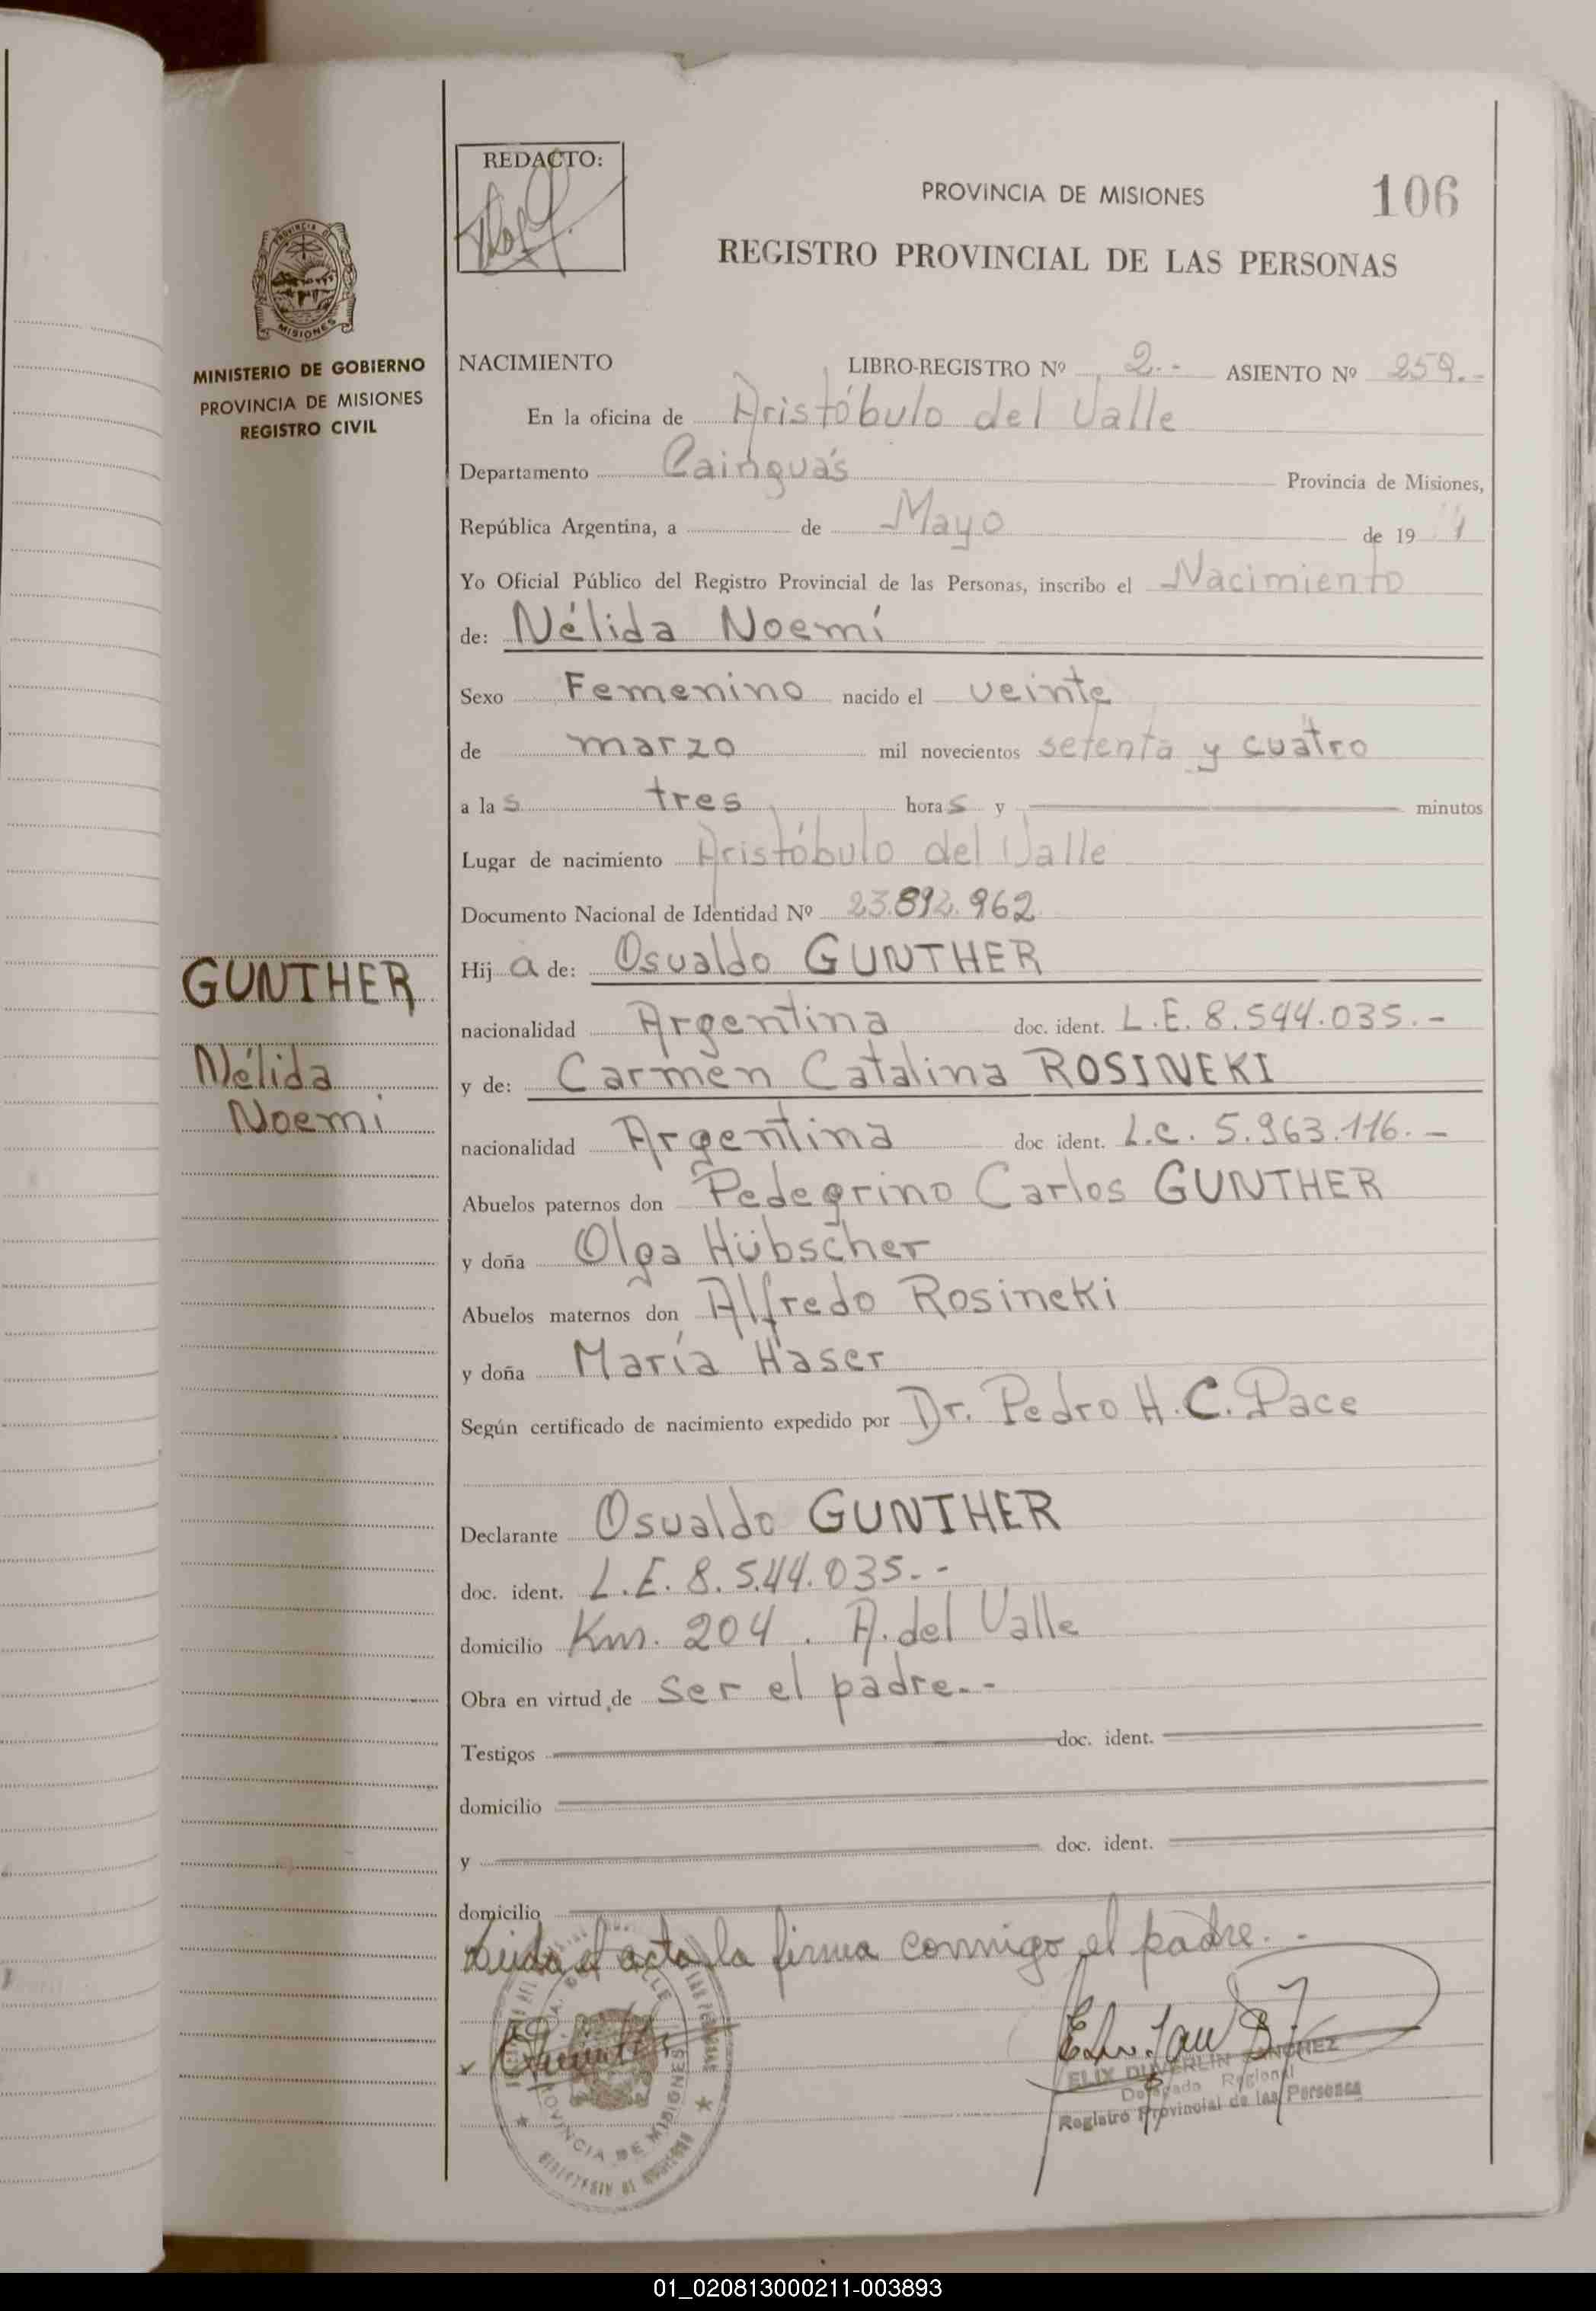 REDACTO:
PROVINCIA DE MISIONES
106
REGISTRO PROVINCIAL DE LAS PERSONAS
MISIONES
MINISTERIO DE GOBIERNO
PROVINCIA DE MISIONES
REGISTRO CIVIL
NACIMIENTO LIBRO-REGISTRO Nº 2.- ASIENTO Nº 259.-
En la oficina de Aristóbulo del Valle
Departamento Cainguás Provincia de Misiones,
República Argentina, a de Mayo de 19
Yo Oficial Público del Registro Provincial de las Personas, inscribo el Nacimiento
de: Nélida Noemí
Sexo Femenino nacido el veinte
de marzo mil novecientos setenta y cuatro
a las tres horas y minutos
Lugar de nacimiento Aristóbulo del Valle
Documento Nacional de Identidad Nº 23.892.962
GUNTHER
Nélida
Noemi
Hija de: Osvaldo GUNTHER
nacionalidad Argentina doc. ident. L.E. 8.544.035.-
y de: Carmen Catalina ROSINEKI
nacionalidad Argentina doc ident. L.C. 5.963.116.-
Abuelos paternos don Pedegrino Carlos GUNTHER
y doña Olga Hübscher
Abuelos maternos don Alfredo Rosineki
y doña María Haser
Según certificado de nacimiento expedido por Dr. Pedro H.C. Pace
Declarante Osvaldo GUNTHER
doc. ident. L.E. 8.544.035.-
domicilio Km. 204. A. del Valle
Obra en virtud de ser el padre.-
Testigos doc. ident.
domicilio
y doc. ident.
domicilio
Leida el acta la firma conmigo el padre.-
PROVINCIA DE MISIONES
ELIX DUVERLIN SANCHEZ
Delegado Regional
Registro Provincial de las Personas
01_020813000211-003893